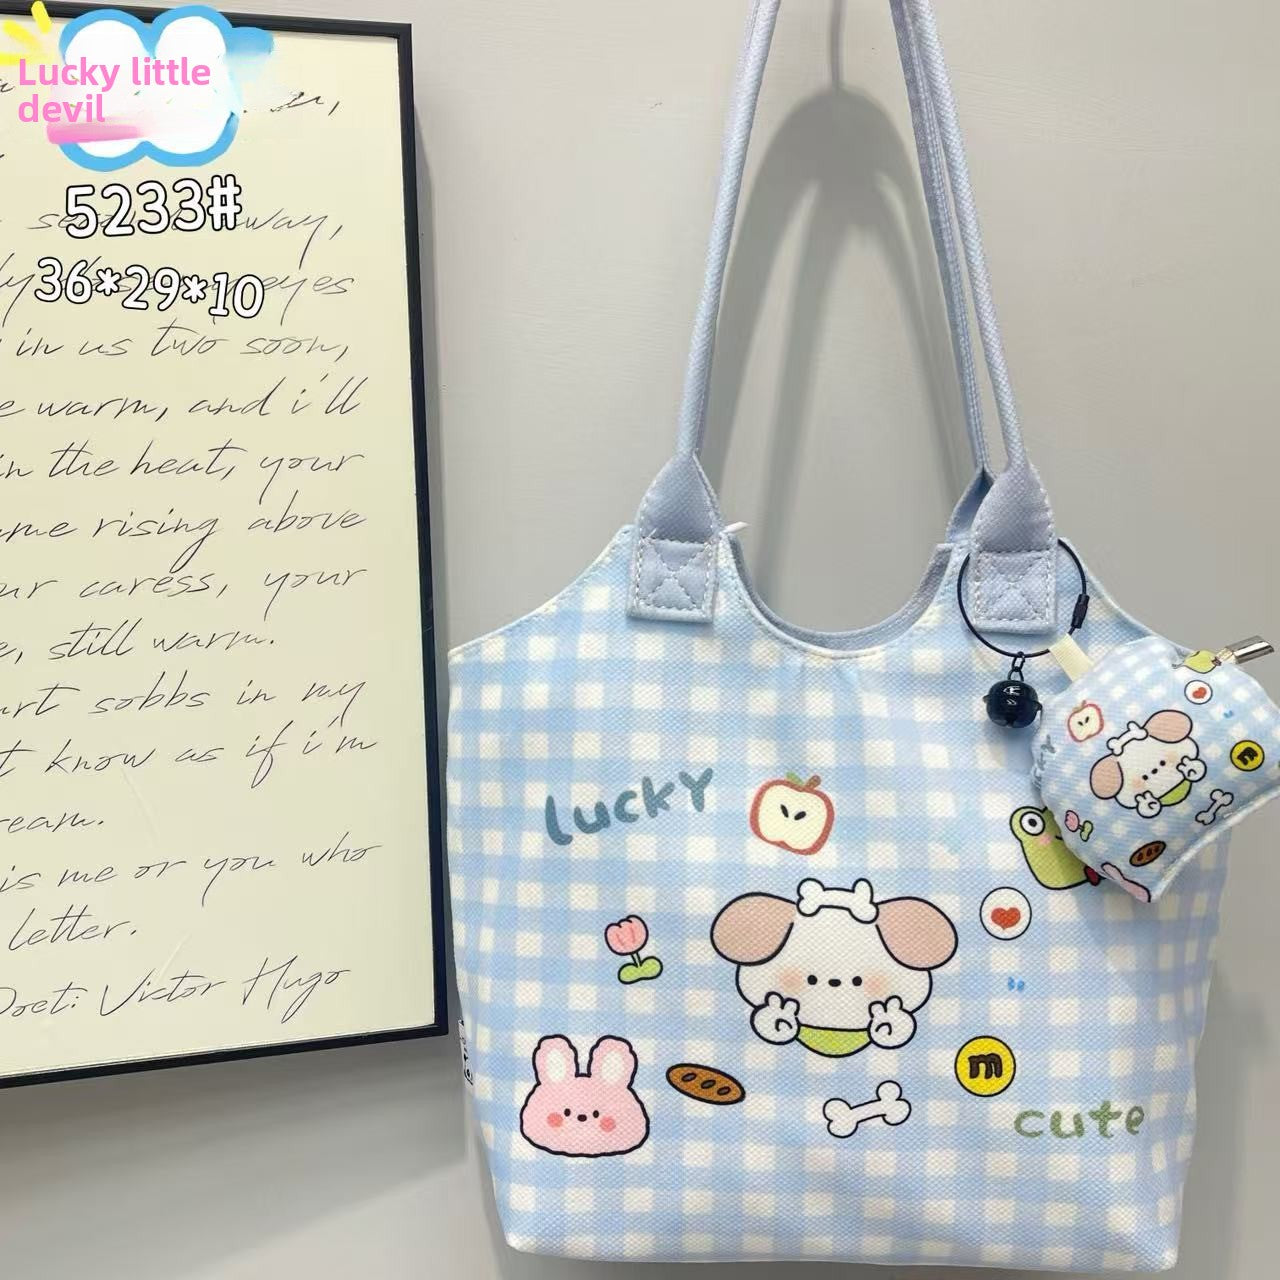 Lucky little
devil
5233#
36*29*10
way,
eyes
in us two soon,
warm, and i'll
in the heat, your
rising above
caress, your
still warm.
sobbs in my
know as if i'm
is me or you who
letter.
Victor Hugo
lucky
m
cute